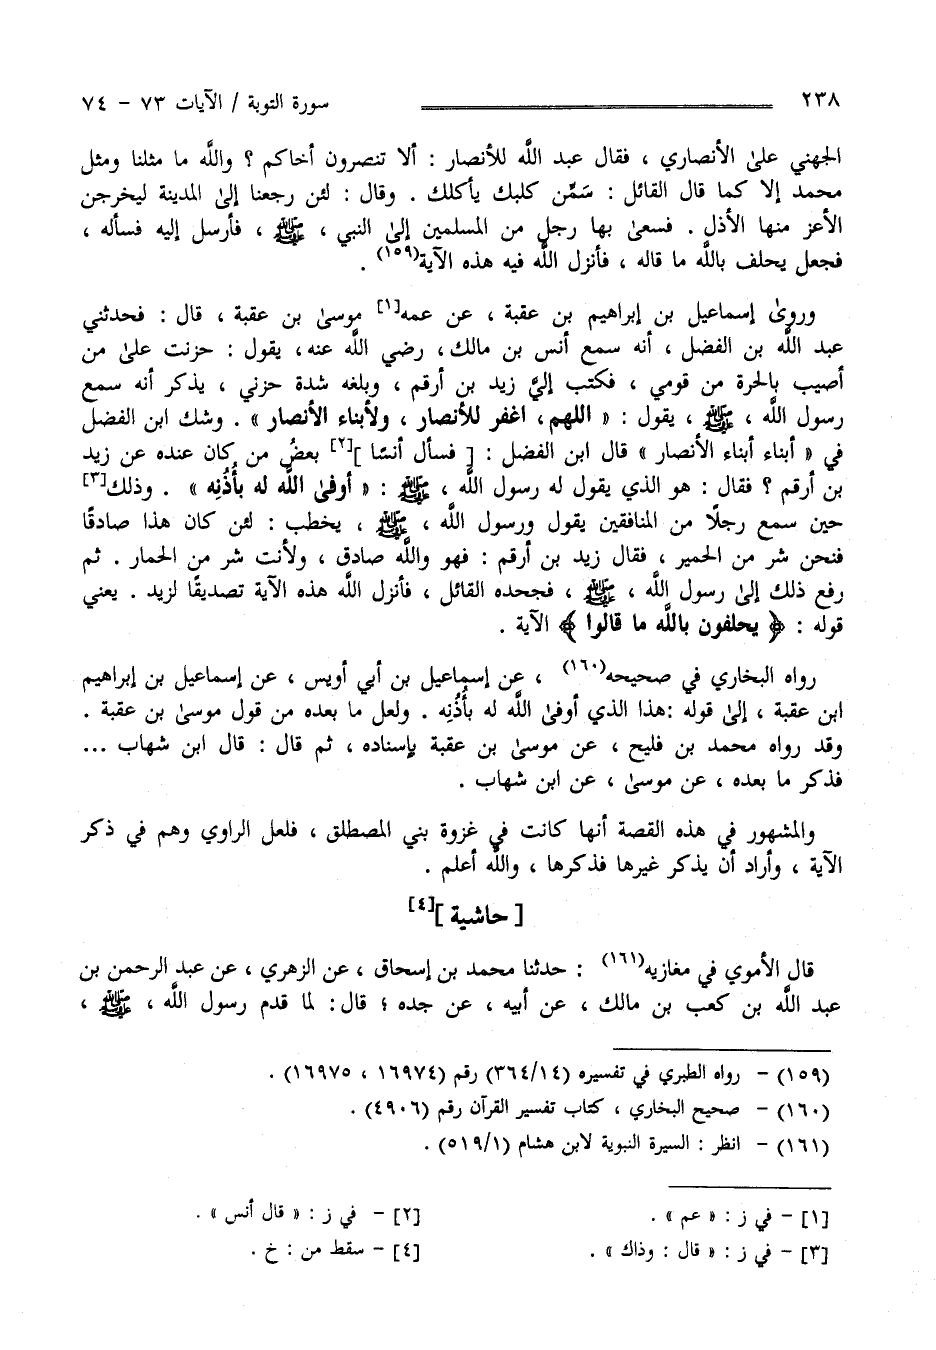 ٢٣٨ سورة التوبة / الآيات ٧٣ - ٧٤
الجهني علىٰ الأنصاري ، فقال عبد اللَّه للأنصار : ألا تنصرون أخاكم ؟ واللَّه ما مثلنا ومثل
محمد إلا كما قال القائل : سَمِّن كلبك يأكلك . وقال : لئن رجعنا إلىٰ المدينة ليخرجن
الأعز منها الأذل . فسعىٰ بها رجل من المسلمين إلىٰ النبي ، ﷺ ، فأرسل إليه فسأله ،
فجعل يحلف باللَّه ما قاله ، فأنزل اللَّه فيه هذه الآية(١٥٩) .
وروىٰ إسماعيل بن إبراهيم بن عقبة ، عن عمه[١] موسىٰ بن عقبة ، قال : فحدثني
عبد اللَّه بن الفضل ، أنه سمع أنس بن مالك، رضي اللَّه عنه، يقول : حزنت علىٰ من
أصيب بالحرة من قومي ، فكتب إليَّ زيد بن أرقم ، وبلغه شدة حزني ، يذكر أنه سمع
رسول اللَّه ، ﷺ ، يقول : « اللهم، اغفر للأنصار ، ولأبناء الأنصار » . وشك ابن الفضل
في « أبناء أبناء الأنصار » قال ابن الفضل : [ فسأل أنسًا ][٢] بعضُ من كان عنده عن زيد
بن أرقم ؟ فقال : هو الذي يقول له رسول اللَّه ، ﷺ : « أوفىٰ اللَّه له بأُذُنِه » . وذلك[٣]
حين سمع رجلًا من المنافقين يقول ورسول اللَّه ، ﷺ ، يخطب : لئن كان هذا صادقًا
فنحن شر من الحمير ، فقال زيد بن أرقم : فهو واللَّه صادق ، ولأنت شر من الحمار . ثم
رفع ذلك إلىٰ رسول اللَّه ، ﷺ ، فجحده القائل ، فأنزل اللَّه هذه الآية تصديقًا لزيد . يعني
قوله : ﴿ يحلفون باللَّه ما قالوا ﴾ الآية .
رواه البخاري في صحيحه(١٦٠) ، عن إسماعيل بن أبي أويس ، عن إسماعيل بن إبراهيم
ابن عقبة ، إلىٰ قوله :هذا الذي أوفىٰ اللَّه له بأُذُنِه . ولعل ما بعده من قول موسىٰ بن عقبة .
وقد رواه محمد بن فليح ، عن موسىٰ بن عقبة بإسناده ، ثم قال : قال ابن شهاب ...
فذكر ما بعده ، عن موسىٰ ، عن ابن شهاب .
والمشهور في هذه القصة أنها كانت في غزوة بني المصطلق ، فلعل الراوي وهم في ذكر
الآية ، وأراد أن يذكر غيرها فذكرها ، واللَّه أعلم .
[ حاشية ][٤]
قال الأموي في مغازيه(١٦١) : حدثنا محمد بن إسحاق ، عن الزهري ، عن عبد الرحمن بن
عبد اللَّه بن كعب بن مالك ، عن أبيه ، عن جده ؛ قال: لما قدم رسول اللَّه ، ﷺ ،
(١٥٩) - رواه الطبري في تفسيره (٣٦٤/١٤) رقم (١٦٩٧٤ ، ١٦٩٧٥) .
(١٦٠) - صحيح البخاري ، كتاب تفسير القرآن رقم (٤٩٠٦) .
(١٦١) - انظر : السيرة النبوية لابن هشام (٥١٩/١) .
[١] - في ز : « عم » . [٢] - في ز : « قال أنس » .
[٣] - في ز : « قال : وذاك » . [٤] - سقط من : خ .